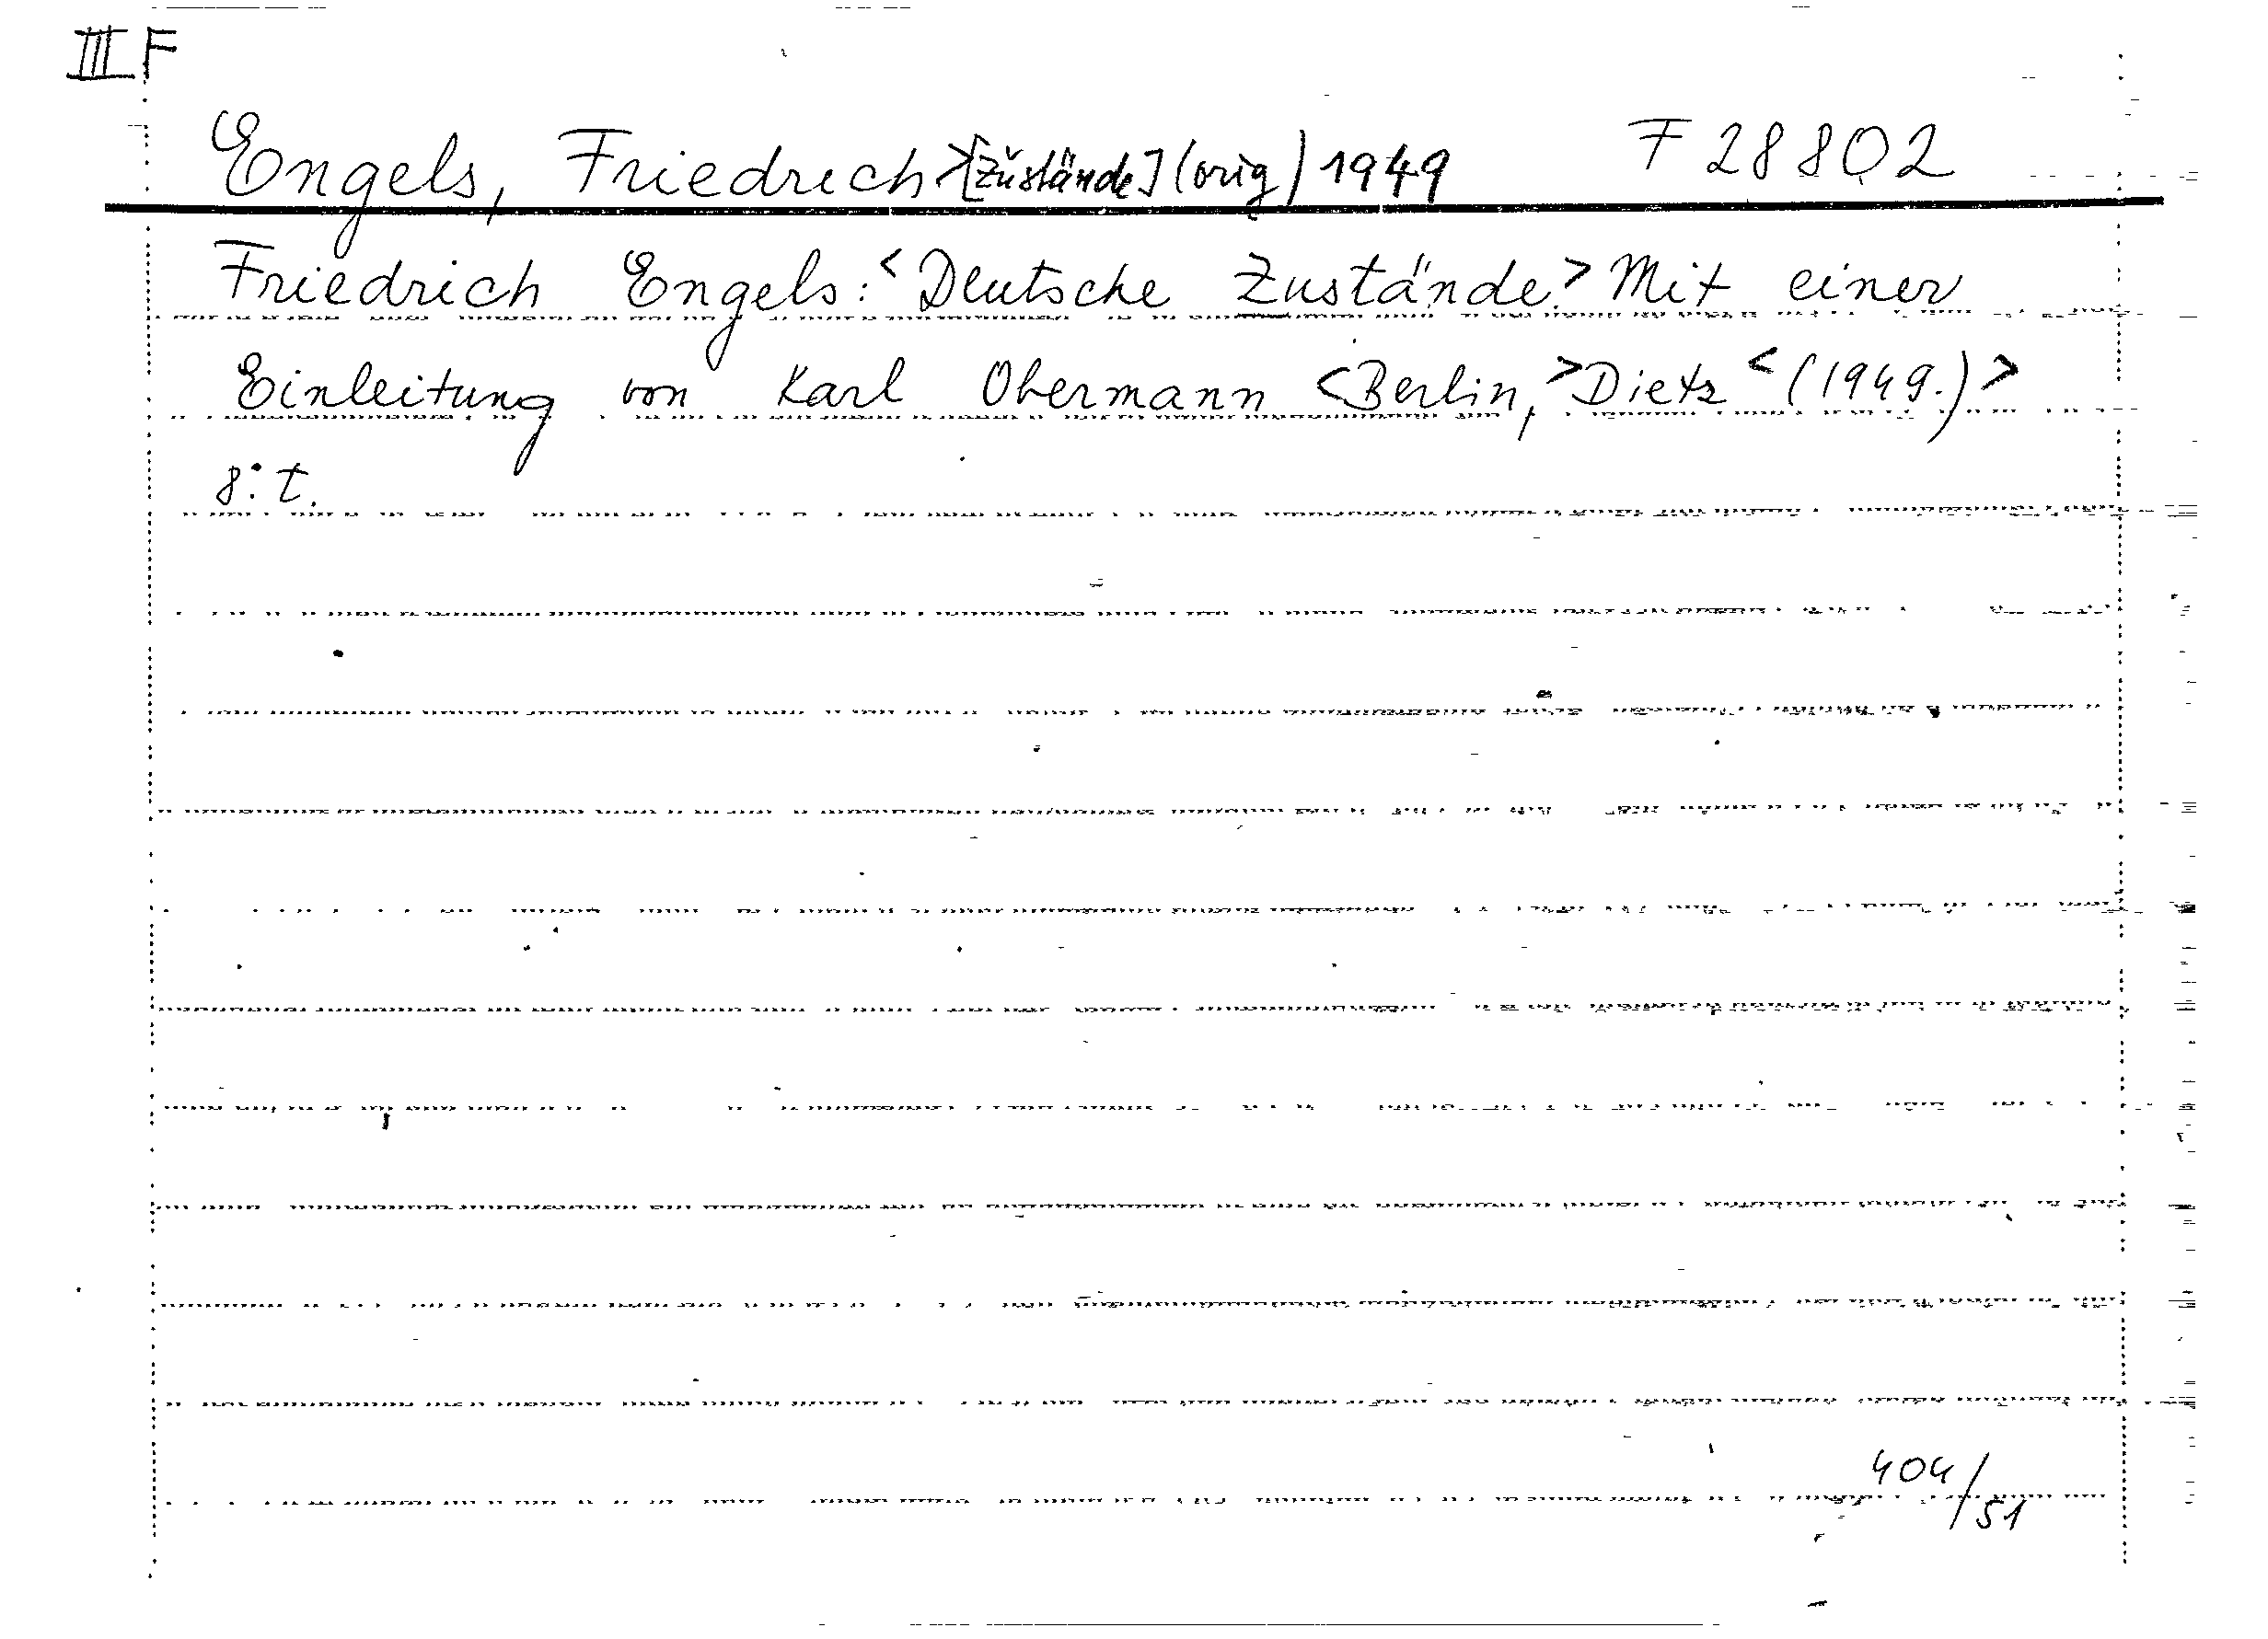 III F
Engels, Friedrich >[Zustände] (orig) 1949 F 28802
Friedrich Engels: <Deutsche Zustände.> Mit einer
Einleitung von Karl Obermann <Berlin,> Dietz <(1949.)>
8° t.
404/51